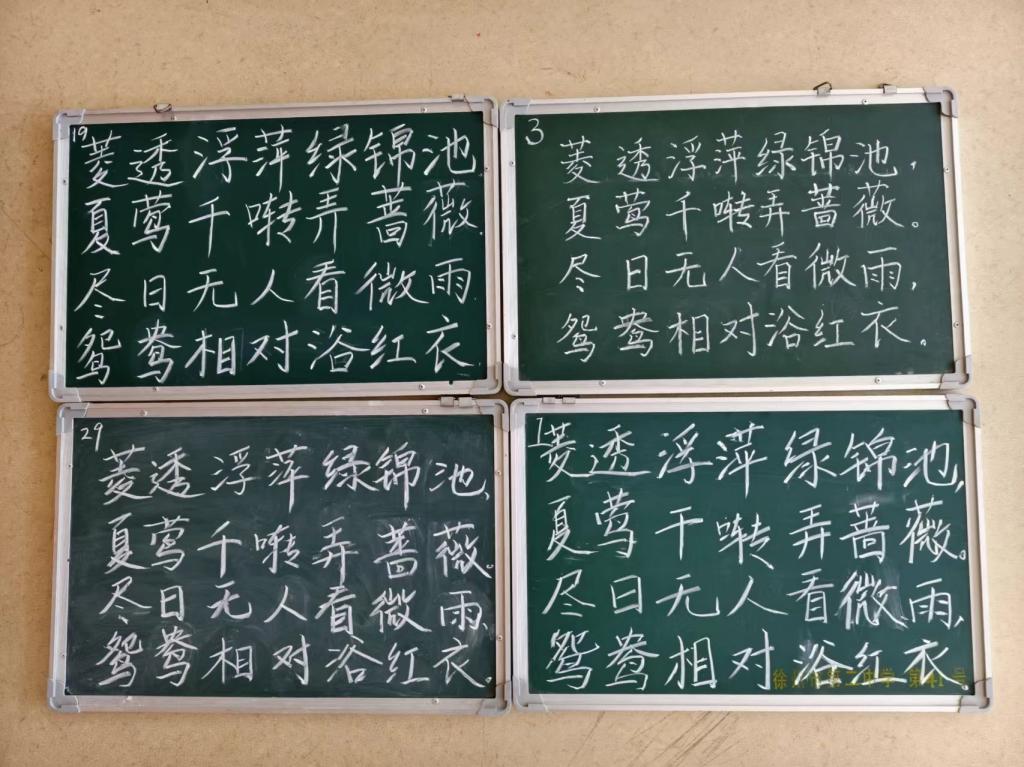 19
菱透浮萍绿锦池
夏莺千啭弄蔷薇.
尽日无人看微雨
鸳鸯相对浴红衣
3
菱透浮萍绿锦池,
夏莺千啭弄蔷薇。
尽日无人看微雨,
鸳鸯相对浴红衣。
29
菱透浮萍绿锦池、
夏莺千啭弄蔷薇。
尽日无人看微雨、
鸳鸯相对浴红衣、
1
菱透浮萍绿锦池,
夏莺千啭弄蔷薇。
尽日无人看微雨,
鸳鸯相对浴红衣
第二中学 第41号